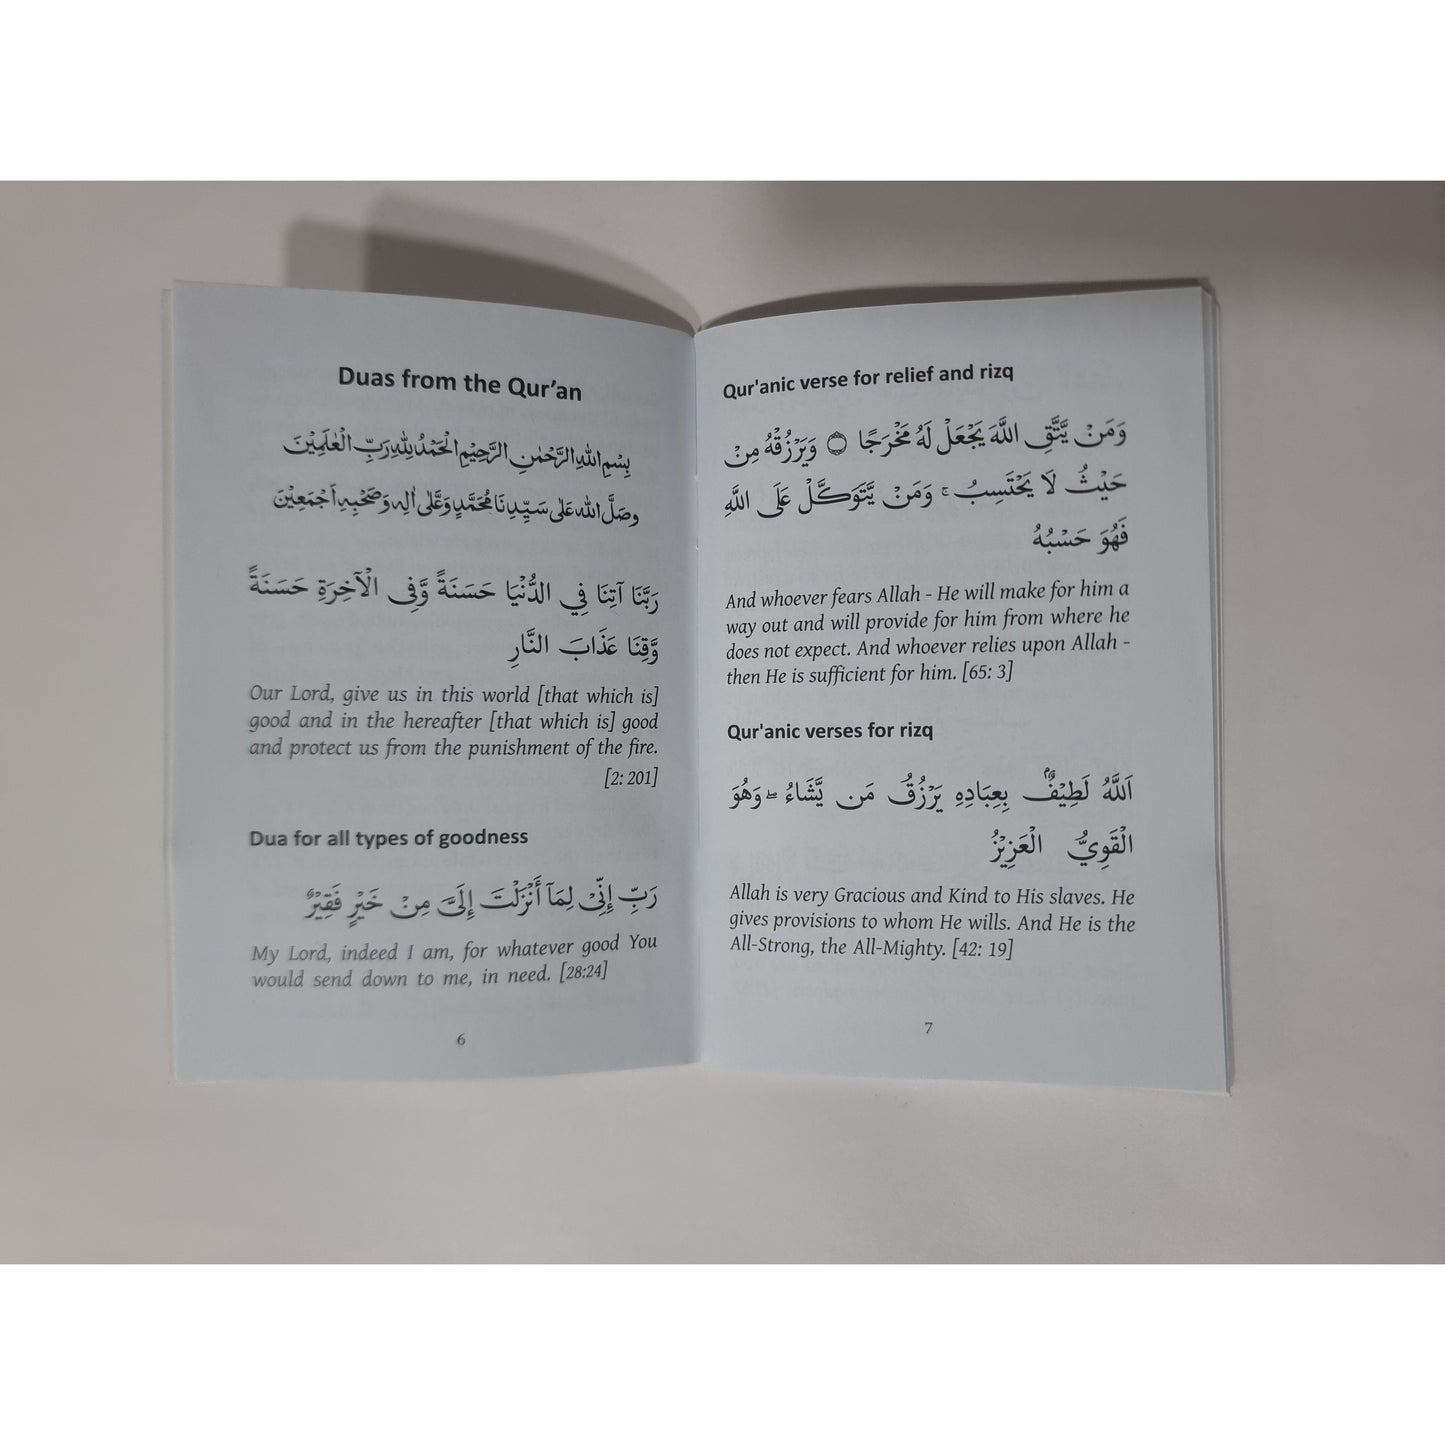 Duas from the Qur’an
بِسْمِ اللهِ الرَّحْمٰنِ الرَّحِيْمِ الْحَمْدُ لِلّٰهِ رَبِّ الْعٰلَمِيْنَ
وصَلَّ اللهُ عَلٰى سَيِّدِنَا مُحَمَّدٍ وَعَلٰى اٰلِهٖ وَصَحْبِهٖ اَجْمَعِيْنَ
رَبَّنَا آتِنَا فِي الدُّنْيَا حَسَنَةً وَّفِى الْآخِرَةِ حَسَنَةً
وَّقِنَا عَذَابَ النَّارِ
Our Lord, give us in this world [that which is]
good and in the hereafter [that which is] good
and protect us from the punishment of the fire.
[2: 201]
Dua for all types of goodness
رَبِّ إِنِّىْ لِمَآ أَنْزَلْتَ إِلَىَّ مِنْ خَيْرٍ فَقِيْرٌ
My Lord, indeed I am, for whatever good You
would send down to me, in need. [28:24]
6
Qur'anic verse for relief and rizq
وَمَنْ يَّتَّقِ اللَّهَ يَجْعَلْ لَهُ مَخْرَجًا ۝ وَيَرْزُقْهُ مِنْ
حَيْثُ لَا يَحْتَسِبُ ۚ وَمَنْ يَّتَوَكَّلْ عَلَى اللَّهِ
فَهُوَ حَسْبُهُ
And whoever fears Allah - He will make for him a
way out and will provide for him from where he
does not expect. And whoever relies upon Allah -
then He is sufficient for him. [65: 3]
Qur'anic verses for rizq
اَللَّهُ لَطِيْفٌۢ بِعِبَادِهِ يَرْزُقُ مَن يَّشَاءُ ۖ وَهُوَ
الْقَوِيُّ الْعَزِيْزُ
Allah is very Gracious and Kind to His slaves. He
gives provisions to whom He wills. And He is the
All-Strong, the All-Mighty. [42: 19]
7